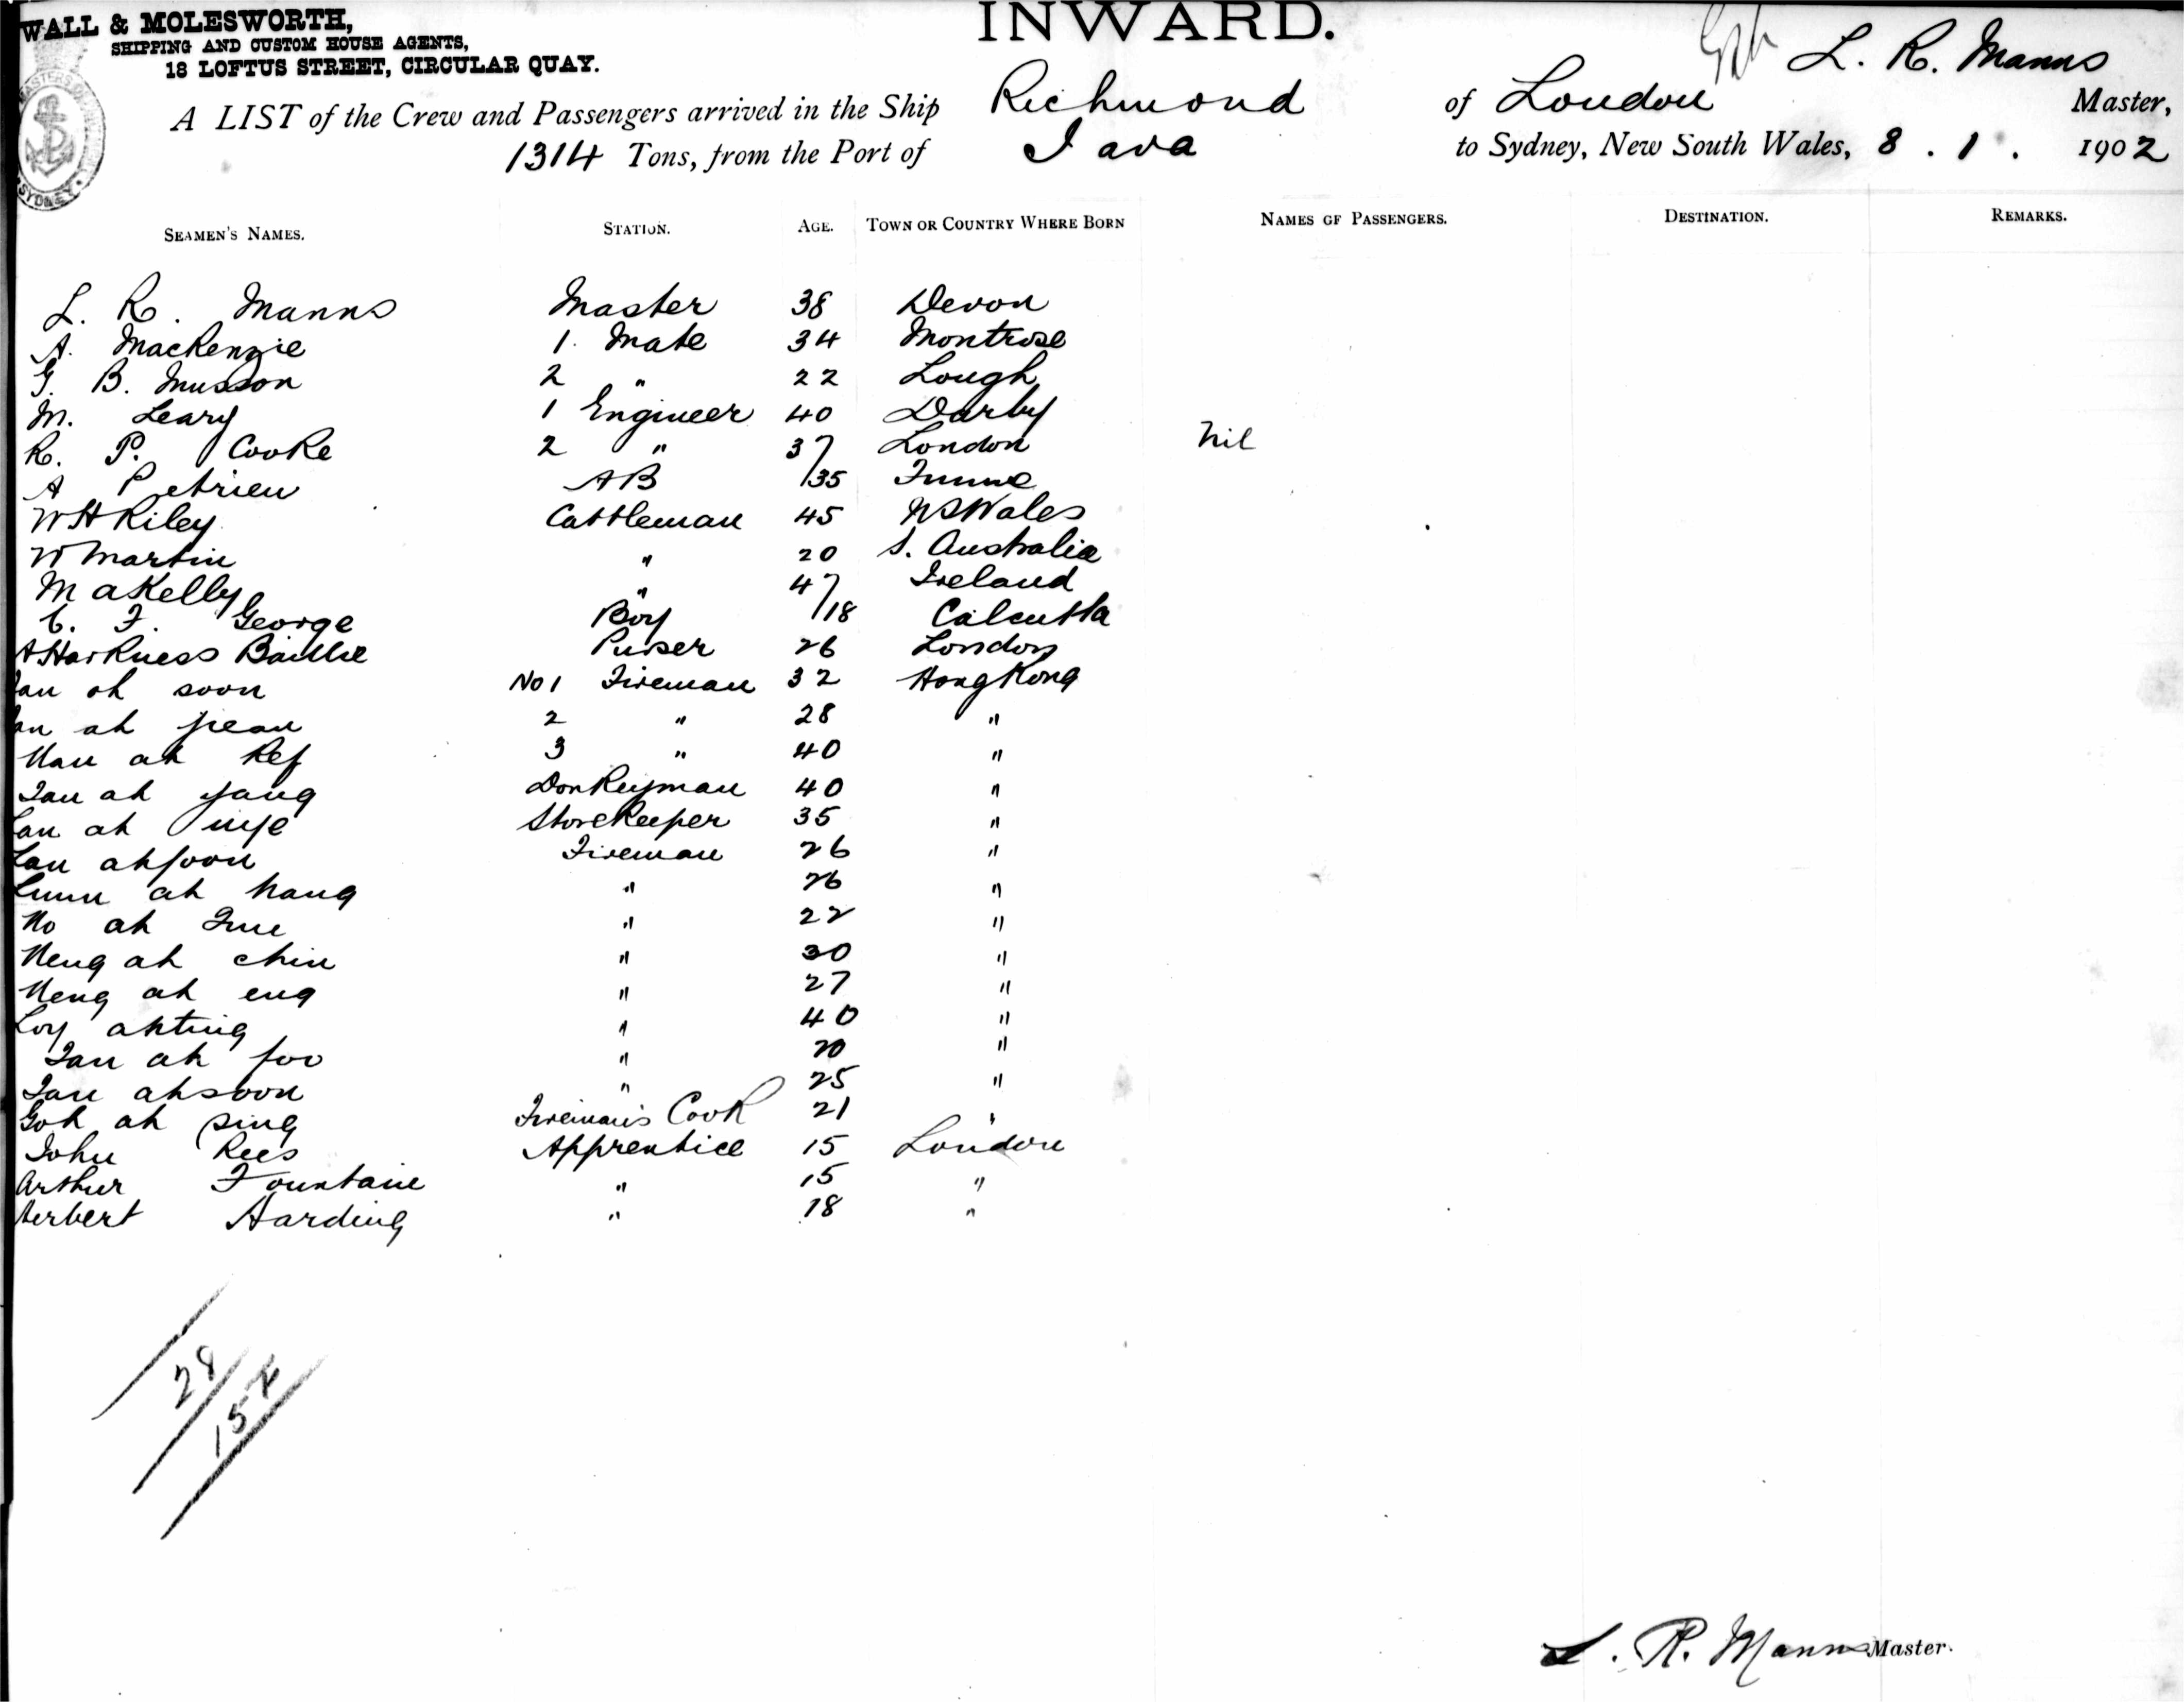 WALL & MOLESWORTH,
SHIPPING AND CUSTOM HOUSE AGENTS,
18 LOFTUS STREET, CIRCULAR QUAY.
INWARD.
L. R. Manns
A LIST of the Crew and Passengers arrived in the Ship Richmond of London Master,
1314 Tons, from the Port of Java to Sydney, New South Wales, 8 . 1 . 1902
SYDNEY
SEAMEN'S NAMES. STATION. AGE. TOWN OR COUNTRY WHERE BORN NAMES OF PASSENGERS. DESTINATION. REMARKS.
L. R. Manns Master 38 Devon
A. MacKenzie 1. Mate 34 Montrose
G. B. Musson 2 " 22 Lough
M. Leary 1 Engineer 40 Darby
R. P. Cooke 2 " 37 London nil
A AB 35
W H Riley Cattleman 45 N S Wales
W Martin " 20 S. Australia
M a Kelly " 47 Ireland
C. F. George Boy 18 Calcutta
A Harkness Baillie Purser 26 London
ah soon No 1 Fireman 32 Hong Kong
ah 2 " 28 "
ah 3 " 40 "
Tan ah yang Donkeyman 40 "
ah Storekeeper 35 "
Fireman 26 "
ah hang " 26 "
ah " 22 "
Neng ah chin " 30 "
Neng ah eng " 27 "
Loy ahting " 40 "
Tan ah foo " 20 "
Tan ahsoon " 25 "
Goh ah sing Fireman's Cook 21 "
John Rees Apprentice 15 London
Arthur Fountain " 15 "
Herbert Harding " 18 "
28
15
L. R. Manns Master.